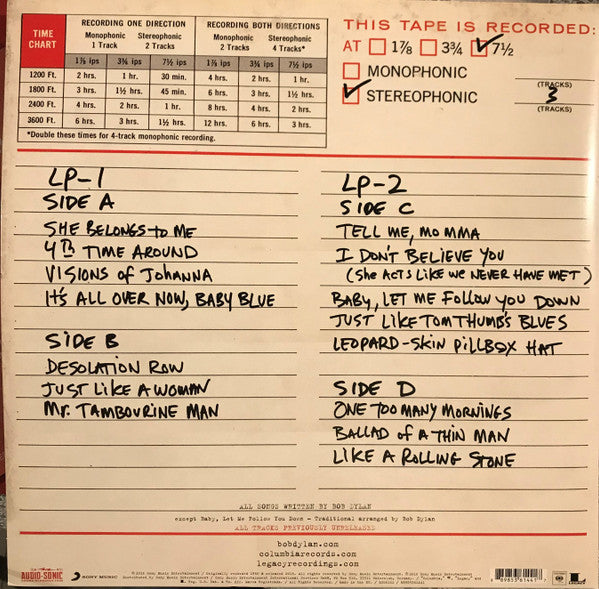 TIME CHART
RECORDING ONE DIRECTION
RECORDING BOTH DIRECTIONS
Monophonic 1 Track
Stereophonic 2 Tracks
Monophonic 2 Tracks
Stereophonic 4 Tracks*
1⅞ ips 3¾ ips 7½ ips 1⅞ ips 3¾ ips 7½ ips
1200 Ft. 2 hrs. 1 hr. 30 min. 4 hrs. 2 hrs. 1 hr.
1800 Ft. 3 hrs. 1½ hrs. 45 min. 6 hrs. 3 hrs. 1½ hrs.
2400 Ft. 4 hrs. 2 hrs. 1 hr. 8 hrs. 4 hrs. 2 hrs.
3600 Ft. 6 hrs. 3 hrs. 1½ hrs. 12 hrs. 6 hrs. 3 hrs.
*Double these times for 4-track monophonic recording.
THIS TAPE IS RECORDED:
AT 1⅞ 3¾ 7½
MONOPHONIC
(TRACKS)
STEREOPHONIC 3
(TRACKS)
LP-1
SIDE A
SHE BELONGS to ME
4th TIME AROUND
VISIONS of JOHANNA
IT'S ALL OVER NOW, BABY BLUE
SIDE B
DESOLATION ROW
JUST LIKE A WOMAN
Mr. TAMBOURINE MAN
LP-2
SIDE C
TELL ME, MOMMA
I DON'T BELIEVE YOU
(She ACTS LIKE WE NEVER HAVE MET)
BABY, LET ME FOLLOW YOU DOWN
JUST LIKE TOM THUMB'S BLUES
LEOPARD-SKIN PILLBOX HAT
SIDE D
ONE TOO MANY MORNINGS
BALLAD of A THIN MAN
LIKE A ROLLING STONE
ALL SONGS WRITTEN BY BOB DYLAN
except Baby, Let Me Follow You Down - Traditional arranged by Bob Dylan
ALL TRACKS PREVIOUSLY UNRELEASED
bobdylan.com
columbiarecords.com
legacyrecordings.com
AUDIO-SONIC
SONY MUSIC